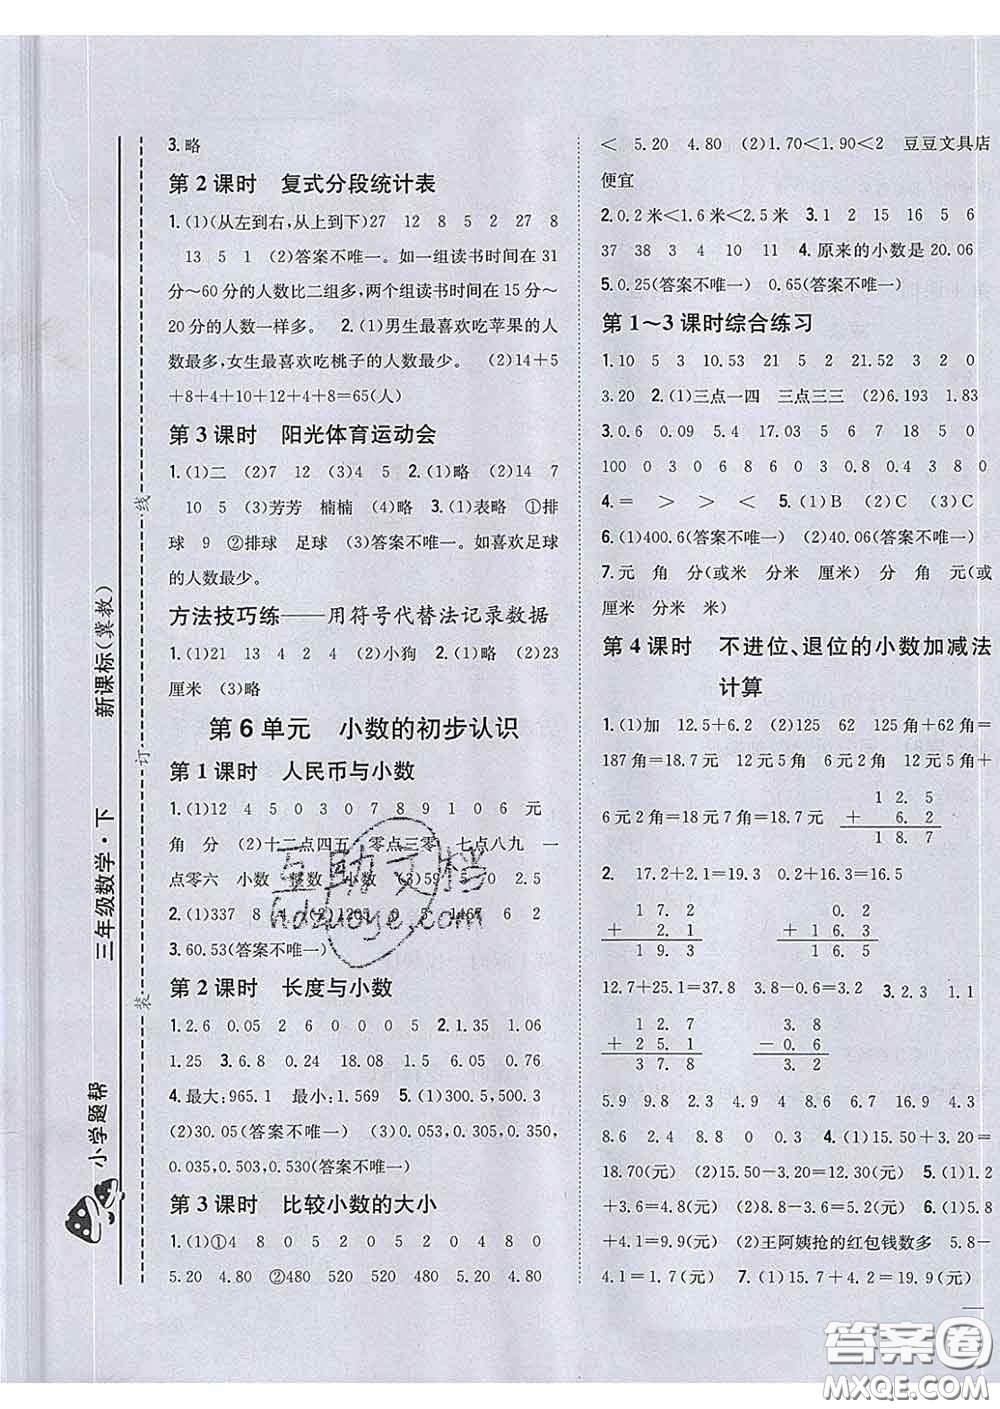 3.略
第2课时 复式分段统计表
1.(1)(从左到右,从上到下)27 12 8 5 2 27 8
13 5 1 (2)答案不唯一。如一组读书时间在31
分～60分的人数比二组多,两个组读书时间在15分～
20分的人数一样多。 2.(1)男生最喜欢吃苹果的人
数最多,女生最喜欢吃桃子的人数最少。 (2)14+5
+8+4+10+12+4+8=65(人)
第3课时 阳光体育运动会
1.(1)二 (2)7 12 (3)4 5 2.(1)略 (2)14 7
10 5 (3)芳芳 楠楠 (4)略 3.(1)表略 ①排
球 9 ②排球 足球 (3)答案不唯一。如喜欢足球
的人数最少。
方法技巧练——用符号代替法记录数据
1.(1)21 13 4 2 (2)4 (3)小狗 2.(1)略 (2)23
厘米 (3)略
第6单元 小数的初步认识
第1课时 人民币与小数
1.(1)12 4 5 0 3 0 7 8 9 1 0 6 元
角 分 (2)十二点四五 零点三零 七点八九 一
点零六 小数 整数 小数 (3)59 70 2.5
2.(1)337 8 4 (2)1203 0 5 1467 6
3.60.53(答案不唯一)
第2课时 长度与小数
1.2.6 0.05 2 6 0 0 0 5 2.1.35 1.06
1.25 3.6.8 0.24 18.08 1.5 6.05 0.76
4.最大:965.1 最小:1.569 5.(1)300.5,500.3
(2)30.05(答案不唯一) (3)0.053,0.305,0.350,
0.035,0.503,0.530(答案不唯一)
第3课时 比较小数的大小
1.(1)①4 8 0 5 2 0 5 2 0 4 8 0
5.20 4.80 ②480 520 520 480 5.20 4.80
< 5.20 4.80 (2)1.70<1.90<2 豆豆文具店
便宜
2.0.2米<1.6米<2.5米 3.1 2 15 16 5 6
37 38 3 4 10 11 4.原来的小数是20.06
5.0.25(答案不唯一) 0.65(答案不唯一)
第1～3课时综合练习
1.10 5 3 10.53 21 5 2 21.52 3 2 0
3.20 2.(1)三点一四 三点三三 (2)6.193 1.83
3.0.6 0.09 5.4 17.03 5 6 7 18 5 0
100 0 3 0 6 8 6 3 0.8 0.4 3 8 0
4.= > > < 5.(1)B (2)C (3)C
6.(1)400.6(答案不唯一) (2)40.06(答案不唯一)
7.元 角 分(或米 分米 厘米) 分 角 元(或
厘米 分米 米)
第4课时 不进位、退位的小数加减法
计算
1.(1)加 12.5+6.2 (2)125 62 125角+62角=
187角=18.7元 12元5角+6元2角=12元+
6元2角=18元7角=18.7元
1 2. 5
+ 6. 2
1 8. 7
2. 17.2+2.1=19.3 0.2+16.3=16.5
1 7. 2 0. 2
+ 2. 1 + 1 6. 3
1 9. 3 1 6. 5
12.7+25.1=37.8 3.8-0.6=3.2 3.2.3 1.1
1 2. 7 3. 8
+ 2 5. 1 - 0. 6
3 7. 8 3. 2
5.9 9.8 2.9 4.4 8.6 6.7 16.9 4.9
8.6 2.4 8.8 0 0.2 4.(1)15.50+3.20=
18.70(元) (2)15.50-3.20=12.30(元) 5.(1)1.2
+3.6=4.8(元) (2)8.8-1.2=7.6(元) 6.(1)5.8
+4.1=9.9(元) (2)王阿姨抢的红包钱数多 5.8-
4.1=1.7(元) 7.(1)15.7+4.2=19.9(元)
小学题帮 三年级数学·下 新课标(冀教)
装 订 线
互助文档
hdzuoye.com
答案卷
MXQE.COM